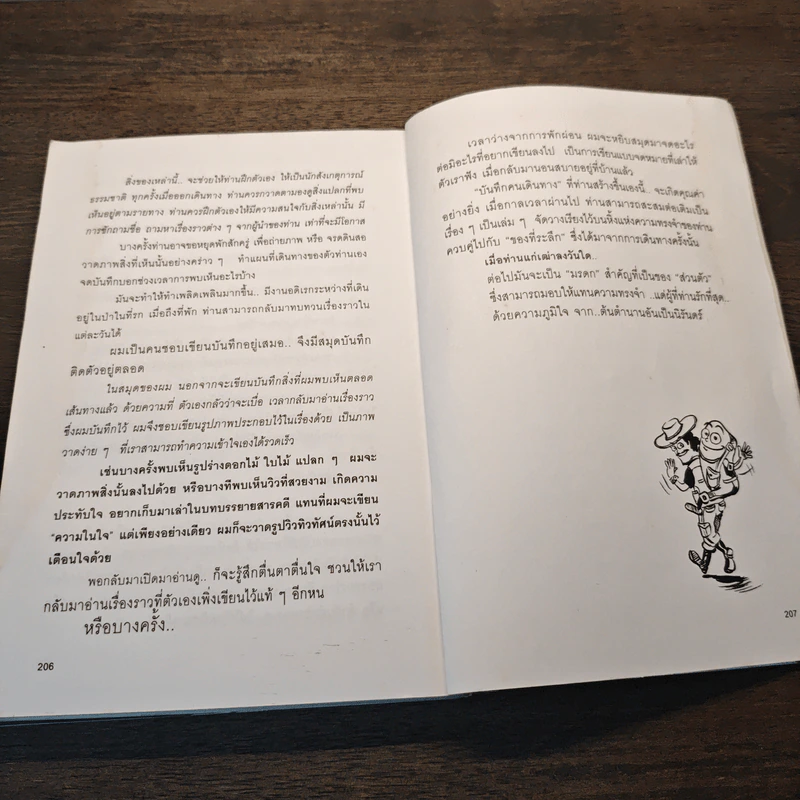 สิ่งของเหล่านี้.. จะช่วยให้ท่านฝึกตัวเอง ให้เป็นนักสังเกตุการณ์
ธรรมชาติ ทุกครั้งเมื่อออกเดินทาง ท่านควรกวาดตามองดูสิ่งแปลกที่พบ
เห็นอยู่ตามรายทาง ท่านควรฝึกตัวเองให้มีความสนใจกับสิ่งเหล่านั้น มี
การซักถามชื่อ ถามหาเรื่องราวต่าง ๆ จากผู้นำของท่าน เท่าที่จะมีโอกาส
บางครั้งท่านอาจขอหยุดพักสักครู่ เพื่อถ่ายภาพ หรือ จรดดินสอ
วาดภาพสิ่งที่เห็นนั้นอย่างคร่าว ๆ ทำแผนที่เดินทางของตัวท่านเอง
จดบันทึกบอกช่วงเวลาการพบเห็นอะไรบ้าง
มันจะทำให้ท่าเพลิดเพลินมากขึ้น.. มีงานอดิเรกระหว่างที่เดิน
อยู่ในป่าในที่รก เมื่อถึงที่พัก ท่านสามารถกลับมาทบทวนเรื่องราวใน
แต่ละวันได้
ผมเป็นคนชอบเขียนบันทึกอยู่เสมอ.. จึงมีสมุดบันทึก
ติดตัวอยู่ตลอด
ในสมุดของผม นอกจากจะเขียนบันทึกสิ่งที่ผมพบเห็นตลอด
เส้นทางแล้ว ด้วยความที่ ตัวเองกลัวว่าจะเบื่อ เวลากลับมาอ่านเรื่องราว
ซึ่งผมบันทึกไว้ ผมจึงชอบเขียนรูปภาพประกอบไว้ในเรื่องด้วย เป็นภาพ
วาดง่าย ๆ ที่เราสามารถทำความเข้าใจเองได้รวดเร็ว
เช่นบางครั้งพบเห็นรูปร่างดอกไม้ ใบไม้ แปลก ๆ ผมจะ
วาดภาพสิ่งนั้นลงไปด้วย หรือบางทีพบเห็นวิวที่สวยงาม เกิดความ
ประทับใจ อยากเก็บมาเล่าในบทบรรยายสารคดี แทนที่ผมจะเขียน
“ความในใจ” แต่เพียงอย่างเดียว ผมก็จะวาดรูปวิวทิวทัศน์ตรงนั้นไว้
เตือนใจด้วย
พอกลับมาเปิดมาอ่านดู.. ก็จะรู้สึกตื่นตาตื่นใจ ชวนให้เรา
กลับมาอ่านเรื่องราวที่ตัวเองเพิ่งเขียนไว้แท้ ๆ อีกหน
หรือบางครั้ง..
206
เวลาว่างจากการพักผ่อน ผมจะหยิบสมุดมาจดอะไร
ต่อมิอะไรที่อยากเขียนลงไป เป็นการเขียนแบบจดหมายที่เล่าให้
ตัวเราฟัง เมื่อกลับมานอนสบายอยู่ที่บ้านแล้ว
“บันทึกคนเดินทาง” ที่ท่านสร้างขึ้นเองนี้.. จะเกิดคุณค่า
อย่างยิ่ง เมื่อกาลเวลาผ่านไป ท่านสามารถสะสมต่อเติมเป็น
เรื่อง ๆ เป็นเล่ม ๆ จัดวางเรียงไว้บนหิ้งแห่งความทรงจำของท่าน
ควบคู่ไปกับ “ของที่ระลึก” ซึ่งได้มาจากการเดินทางครั้งนั้น
เมื่อท่านแก่เฒ่าลงวันใด..
ต่อไปมันจะเป็น “มรดก” สำคัญที่เป็นของ “ส่วนตัว”
ซึ่งสามารถมอบให้แทนความทรงจำ ..แด่ผู้ที่ท่านรักที่สุด..
ด้วยความภูมิใจ จาก..ต้นตำนานอันเป็นนิรันดร์
207